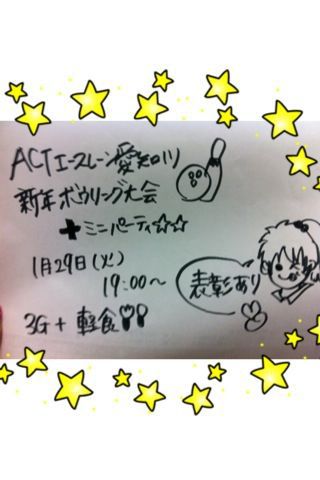 ACTエースレーン愛知川
新年ボウリング大会
+ミニパーティ☆☆
1月29日(火)
19:00～
3G+軽食
表彰あり